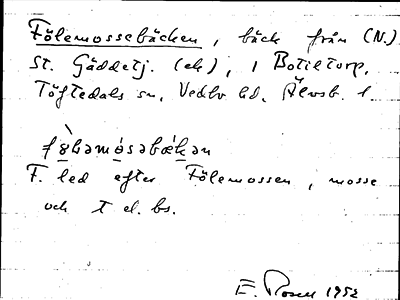 Fölemossebäcken, bäck från (N.)
St. Gäddetj. (ek), i Botiltorp,
Töftedals sn, Vedbo hd, Älvsb. l.
F. led efter Fölemossen, mosse
och t el. bs.
E. Rosen 1952